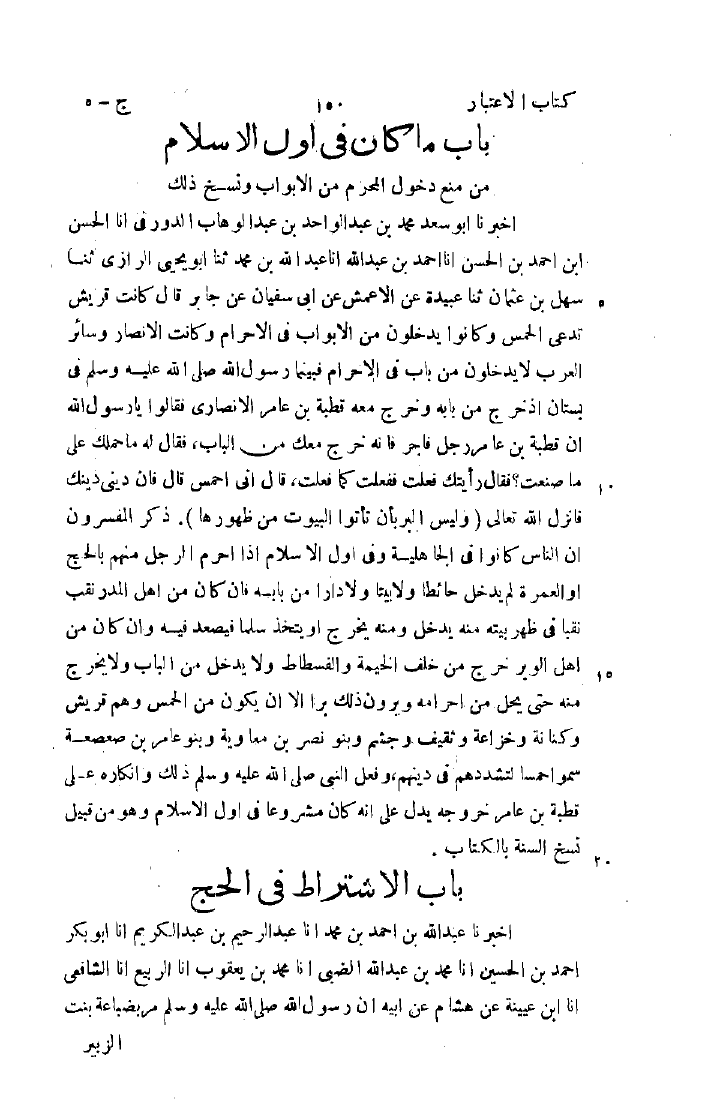 كتاب الاعتبار ١٥٠ ج - ٥
باب ما كان فى اول الاسلام
من منع دخول المحرم من الابواب ونسخ ذلك
اخبرنا ابو سعد محمد بن عبد الواحد بن عبد الوهاب الدورى انا الحسن
ابن احمد بن الحسن انا احمد بن عبدالله انا عبد الله بن محمد ثنا ابو يحيى الرازى ثنا
سهل بن عثمان ثنا عبيدة عن الاعمش عن ابى سفيان عن جابر قال كانت قريش ٥
تدعى الحمس وكانوا يدخلون من الابواب فى الاحرام وكانت الانصار وسائر
العرب لا يدخلون من باب فى الاحرام فبينما رسول الله صلى الله عليه وسلم فى
بستان اذ خرج من بابه وخرج معه قطبة بن عامر الانصارى فقالوا يا رسول الله
ان قطبة بن عامر رجل فاجر فانه خرج معك من الباب، فقال له ما حملك على
ما صنعت؟ فقال رأيتك فعلت ففعلت كما فعلت، قال انى احمس قال فان دينى دينك ١٠
فانزل الله تعالى ( وليس البر بأن تأتوا البيوت من ظهورها ). ذكر المفسرون
ان الناس كانوا فى الجاهلية وفى اول الاسلام اذا احرم الرجل منهم بالحج
او العمرة لم يدخل حائطا ولا بيتا ولا دارا من بابه فان كان من اهل المدر نقب
نقبا فى ظهر بيته منه يدخل ومنه يخرج او يتخذ سلما فيصعد فيه وان كان من
اهل الوبر خرج من خلف الخيمة والفسطاط ولا يدخل من الباب ولا يخرج ١٥
منه حتى يحل من احرامه ويرون ذلك برا الا ان يكون من الحمس وهم قريش
وكنانة وخزاعة وثقيف وجشم وبنو نصر بن معاوية وبنو عامر بن صعصعة
سموا حمسا لتشددهم فى دينهم، وفعل النبى صلى الله عليه وسلم ذلك وانكاره على
قطبة بن عامر خروجه يدل على انه كان مشروعا فى اول الاسلام وهو من قبيل
نسخ السنة بالكتاب . ٢٠
باب الاشتراط فى الحج
اخبرنا عبدالله بن احمد بن محمد انا عبد الرحيم بن عبد الكريم انا ابو بكر
احمد بن الحسين انا محمد بن عبدالله الضبى انا محمد بن يعقوب انا الربيع انا الشافعى
انا ابن عيينة عن هشام عن ابيه ان رسول الله صلى الله عليه وسلم مر بضباعة بنت
الزبير